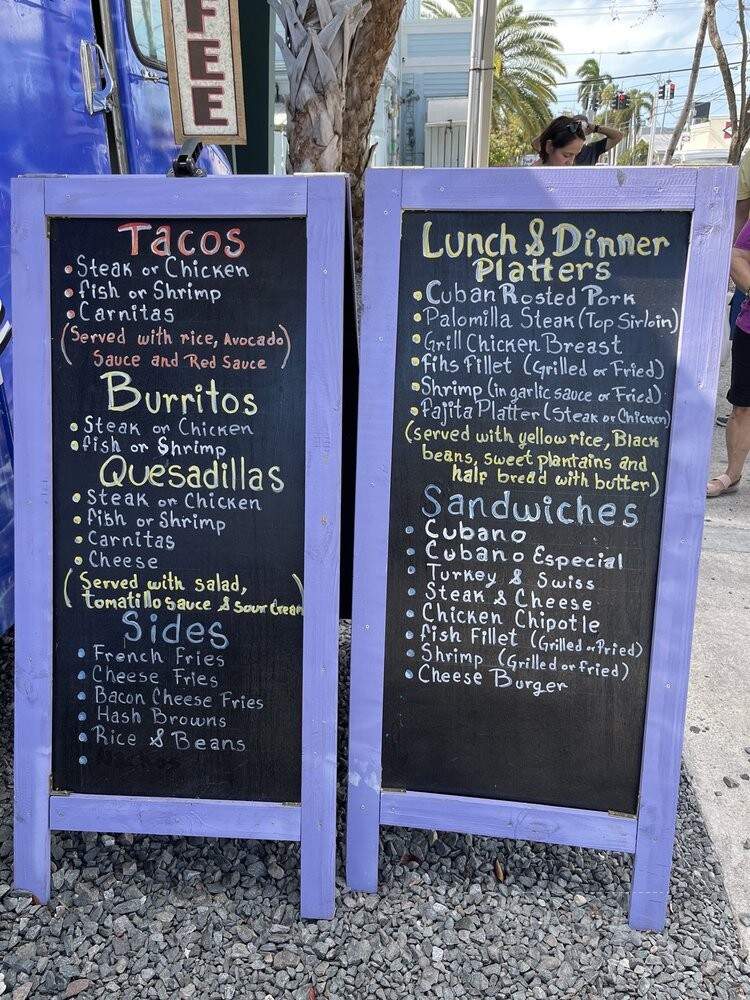 FEE
Tacos
• Steak or Chicken
• fish or Shrimp
• Carnitas
(Served with rice, Avocado)
Sauce and Red Sauce
Burritos
• Steak or Chicken
• fish or Shrimp
Quesadillas
• Steak or Chicken
• fish or Shrimp
• Carnitas
• Cheese
(Served with salad,
tomatillo sauce & sour cream)
Sides
• French Fries
• Cheese Fries
• Bacon Cheese Fries
• Hash Browns
• Rice & Beans
•
Lunch & Dinner
Platters
• Cuban Rosted Pork
• Palomilla Steak (Top Sirloin)
• Grill Chicken Breast
• fihs fillet (Grilled or Fried)
• Shrimp (in garlic sauce or Fried)
• fajita Platter (Steak or Chicken)
(served with yellow rice, Black
beans, sweet plantains and
half bread with butter)
Sandwiches
• Cubano
• Cubano Especial
• Turkey & Swiss
• Steak & Cheese
• Chicken Chipotle
• fish Fillet (Grilled or Fried)
• Shrimp (Grilled or fried)
• Cheese Burger